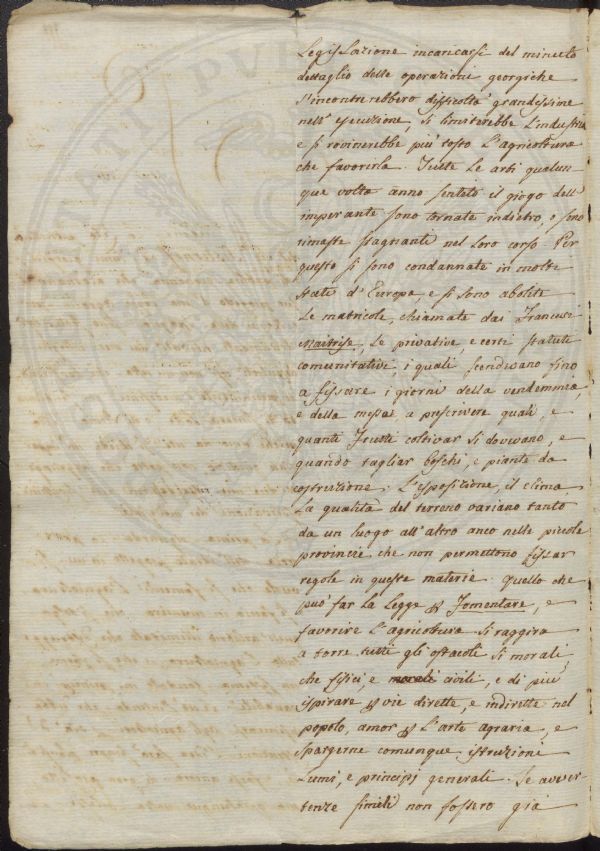 Legislazione incaricarsi del minuto
dettaglio delle operazioni georgiche
s'incontrerebbero difficoltà grandissime
nell'esecuzione, si limiterebbe l'industria
e si rovinerebbe più tosto l'agricoltura
che favorirla. Tutte le arti qualun-
que volta anno sentito il giogo dell'
imperante sono tornate indietro, o sono
rimaste stagnanti nel loro corso Per
questo si sono condannate in molti
stati d'Europa, e si sono abolite
le matricole, chiamate dai Francesi
Maitrise, le privative, e certi statuti
comunitativi, i quali scendevano fino
a fissare i giorni della vendemmia,
e della messe a prescrivere quali, e
quanti frutti coltivar si dovevano, e
quando tagliar boschi, e piante da
costruzione. L'esposizione, il clima
la qualità del terreno variano tanto
da un luogo all'altro anco nelle piccole
provincie che non permettono fissar
regole in queste materie. Quello che
può far la legge p fomentare, e
favorire l'agricoltura si raggira
a torre tutti gli ostacoli si morali,
che fisici, e morali civili, e di più
ispirare p vie dirette, e indirette nel
popolo, amor p l'arte agraria, e
spargerne comunque istruzioni
lumi, e principj generali. Se avver-
tenze simili non fossero già